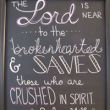 THE
LORD IS NEAR
to the
brokenhearted
& SAVES
those who are
CRUSHED IN SPIRIT